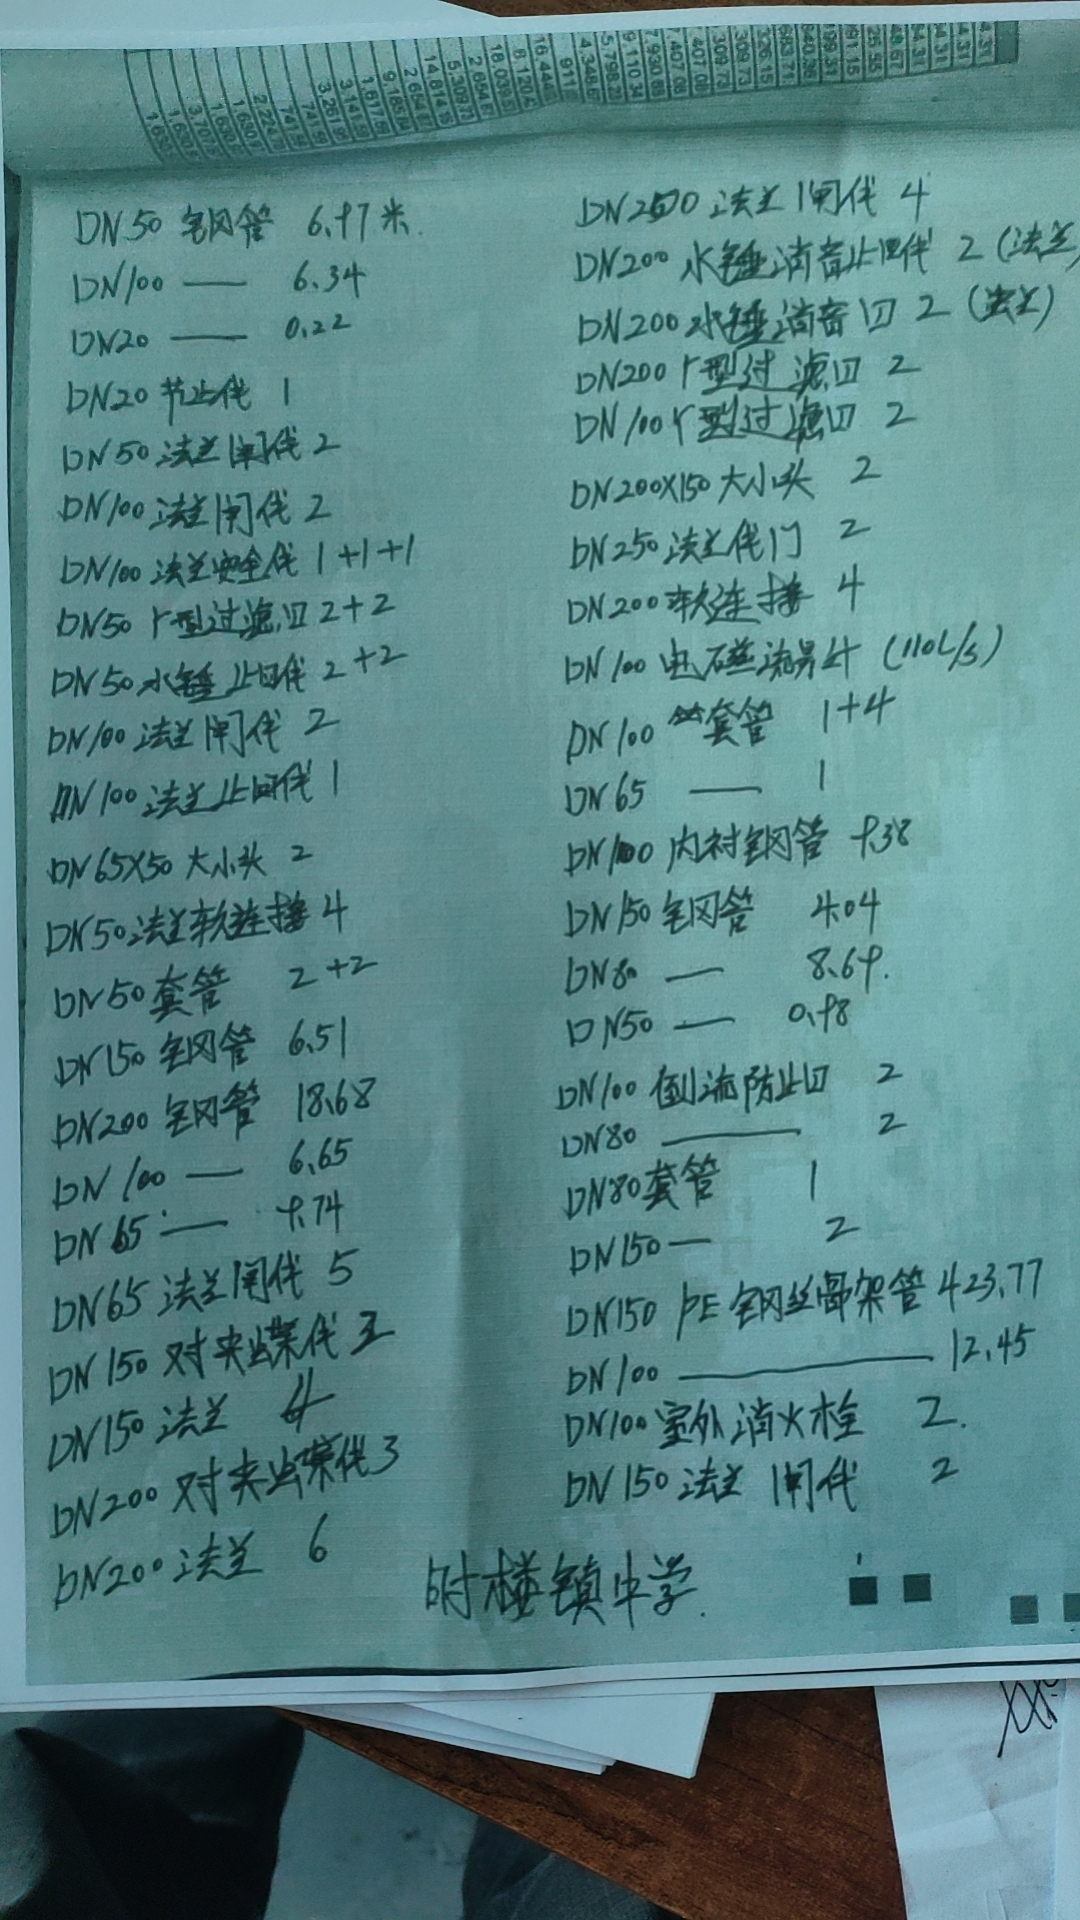 DN50 钢管 6.97米.
DN100 —— 6.34
DN20 —— 0.22
DN20 节止伐 1
DN50 法兰闸伐 2
DN100 法兰闸伐 2
DN100 法兰安全伐 1+1+1
DN50 Y型过滤口 2+2
DN50 水锤止回伐 2+2
DN100 法兰闸伐 2
DN100 法兰止回伐 1
DN65X50 大小头 2
DN50 法兰软连接 4
DN50 套管 2+2
DN150 钢管 6.51
DN200 钢管 18.68
DN100 —— 6.65
DN65 —— 9.74
DN65 法兰闸伐 5
DN150 对夹蝶伐
DN150 法兰 4
DN200 对夹蝶伐 3
DN200 法兰 6
DN200 法兰闸伐 4
DN200 水锤消音止回伐 2 (法兰)
DN200 水锤消音口 2 (法兰)
DN200 Y型过滤口 2
DN100 Y型过滤口 2
DN200X150 大小头 2
DN250 法兰伐门 2
DN200 软连接 4
DN100 电磁流量计 (110L/S)
DN100 套管 1+4
DN65 —— 1
DN100 内衬钢管 9.38
DN150 钢管 4.04
DN80 —— 8.69.
DN50 —— 0.98
DN100 倒流防止口 2
DN80 ——— 2
DN80 套管 1
DN150 — 2
DN150 PE 钢丝骨架管 423.77
DN100 ———— 12.45
DN100 室外消火栓 2.
DN150 法兰 闸伐 2
时楼镇中学.